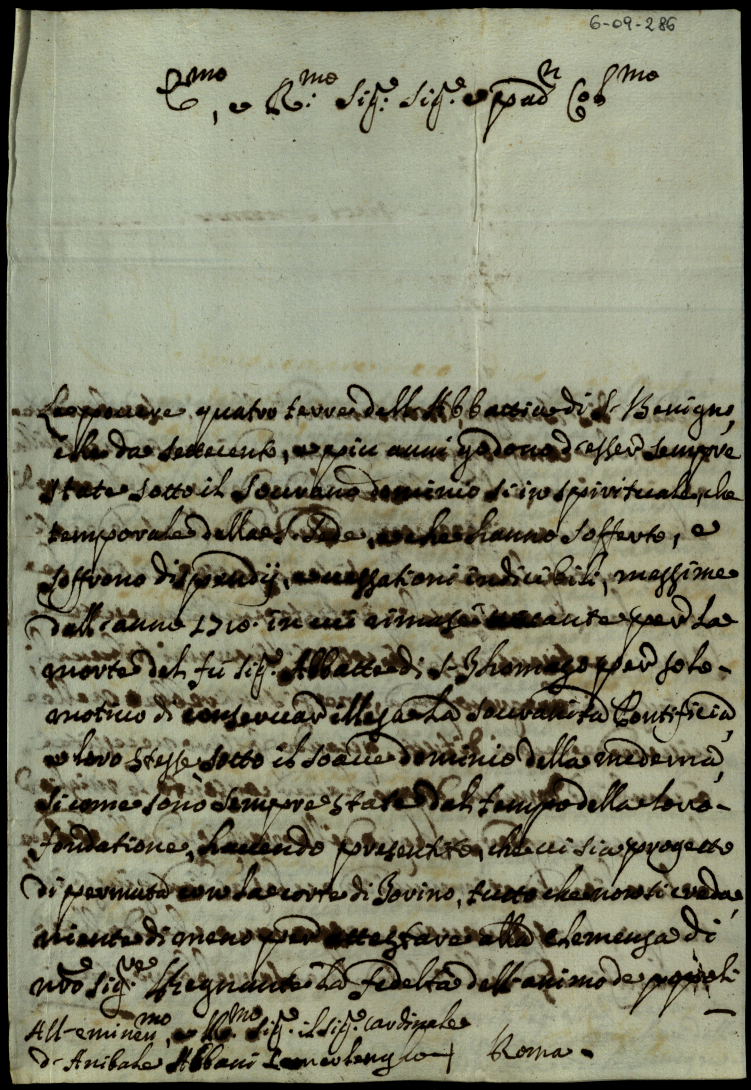 6-09-286
E.mo, e R.mo Sig.e Sig.e e pad.n Col.mo
Le povere quatro terre dell Abbattia di S. Benigno,
che da settecento, e piu anni godono d'esser sempre
state sotto il Sovrano dominio si in spirituale, che
temporale della S. Sede, e che hanno sofferto, e
soffrono dispendij, e vessationi indicibili, massime
dall'anno 1710. in cui rimase vacante per la
morte del fu Sig.e Abbatte di S. Thomaso per solo
motivo di conservar illesa la Sovranità Pontificia,
e loro stesse sotto il soave dominio della medema,
sicome sono sempre state dal tempo della loro
fondatione, havendo presentito, che vi sia progetto
di permuta con la corte di Torino, tutto che non si creda,
niente di meno per attestare alla Clemenza di
nro Sig.re Regnante la fedeltà dell animo de popoli
All eminen.mo, e R.mo Sig.e il Sig.e Cardinale
D. Anibale Albani Camerlengho Roma